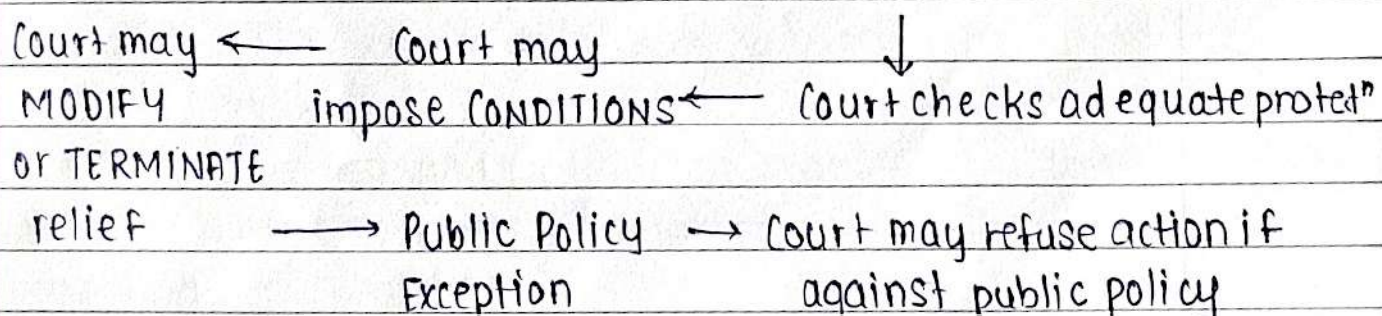 Court may ← Court may ↓
MODIFY impose CONDITIONS ← Court checks adequate protectⁿ
or TERMINATE
relief → Public Policy → Court may refuse action if
Exception against public policy